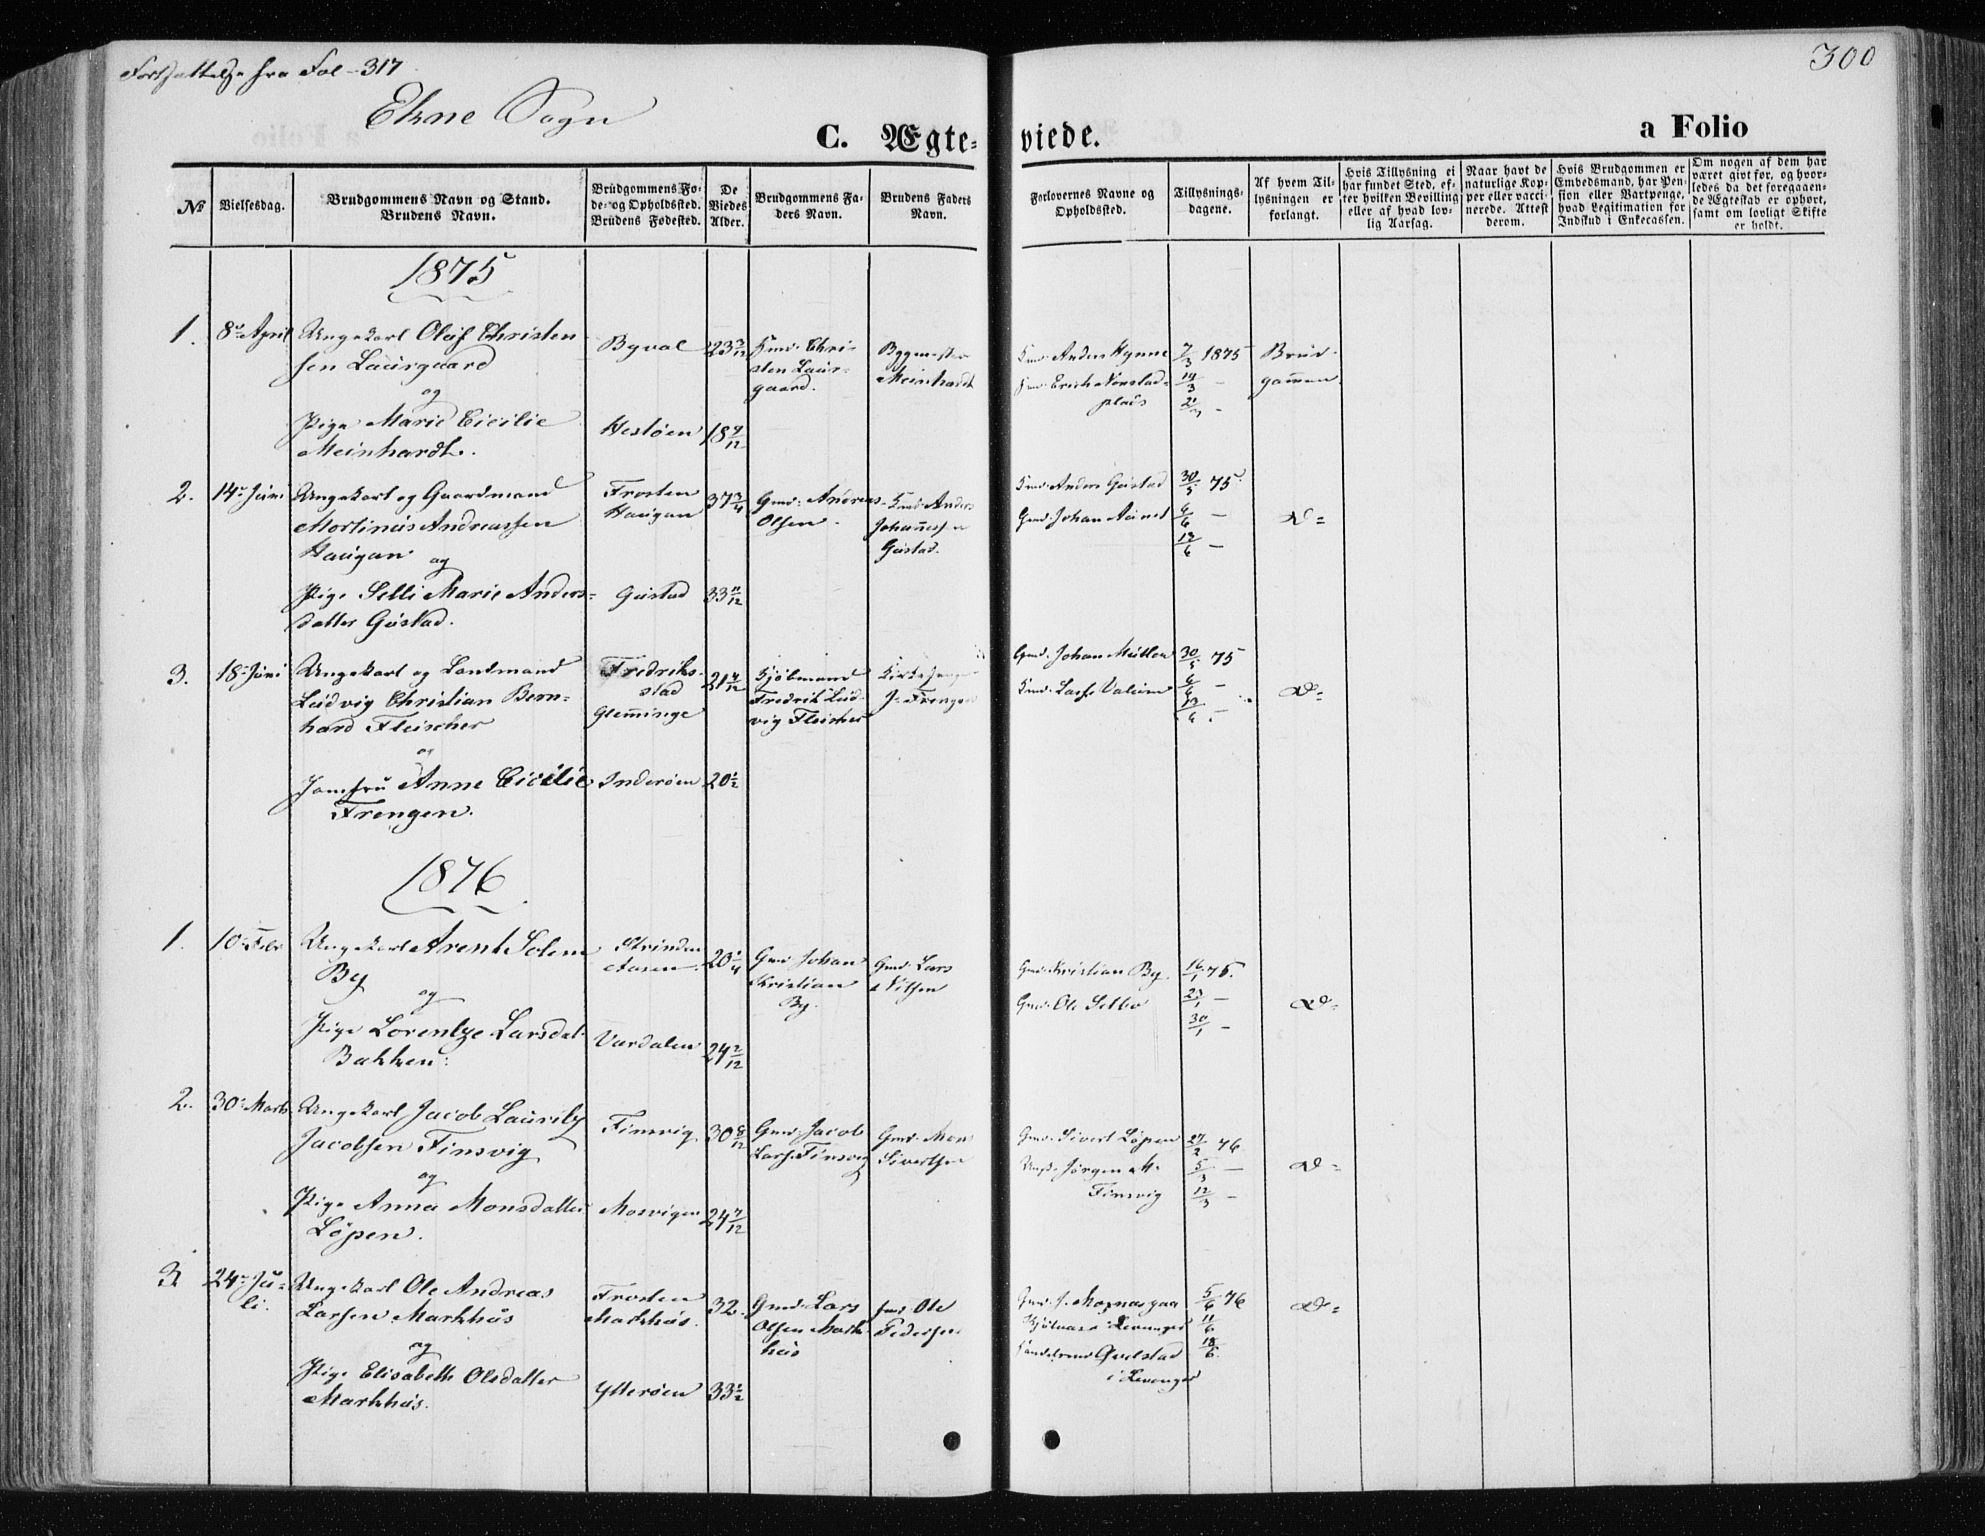 Fortsættelse fra Fol-317
300
Ekne Sogn
C. Ægte-
viede.
a Folio
№
Vielsesdag.
Brudgommens Navn og Stand.
Brudens Navn.
Brudgommens Fø-
de- og Opholdssted.
Brudens Fødested.
De
Viedes
Alder.
Brudgommens Fa-
ders Navn.
Brudens Faders
Navn.
Forlovernes Navne og
Opholdssted.
Tillysnings-
dagene.
Af hvem Til-
lysningen er
forlangt.
Hvis Tillysning ei
har fundet Sted, ef-
ter hvilken Bevilling
eller af hvad lov-
lig Aarsag.
Naar havt de
naturlige Kop-
per eller vacci-
nerede. Attest
derom.
Hvis Brudgommen er
Embedsmand, har Pen-
sion eller Vartpenge,
hvad Legitimation for
Indskud i Enkecassen.
Om nogen af dem har
været givt før, og hvor-
ledes da det foregaaen-
de Ægteskab er ophørt,
samt om lovligt Skifte
er holdt.
1875
1.
8de April
Ungekarl Oluf Christen
sen Laurgaard
og
Pige Marie Cicilie
Meinhardt.
Byval
Hestøen
23 3/12
18 9/12
Gmd. Chri-
sten Laur-
gaard.
Bygmester
Meinhardt
Gmd. Anders Hynne
Gmd. Erich Nonstad-
plads
7/3 1875
14/3 —
21/3 —
Brud-
gommen
2.
14de Juni
Ungekarl og Gaardmand
Mortinus Andreassen
Haugan
og
Pige Selli Marie Anders-
datter Gustad.
Frosten
Haugan
Gustad
37 3/4
33 11/12
Gmd. Andreas
Olsen.
Gmd. Anders
Johannessen
Gustad.
Gmd. Anders Gustad
Gmd. Johan Aunet
30/5 75
6/6 —
13/6 —
D=
3.
18de Juni
Ungekarl og Landmand
Ludvig Christian Bern-
hard Fleischer
og
Jomfru Anne Cicilie
Frengen.
Fredriks-
stad
Glemminge
Inderøen
21 4/12
20 1/2
Kjøbmand
Fredrik Lud-
vig Fleischer
Kirkesanger
J. Frengen
Gmd. Johan Müller
Gmd. Lasse Valum
30/5 75
6/6 —
13/6 —
D=
1876
1.
10de Febr
Ungekarl Arent Solem
By
og
Pige Lorentze Larsdat
Bakken.
Strinden
Aasen
Værdalen
20 1/4
24 2/12
Gmd. Johan
Kristian
By.
Gmd. Lars
Nilsen
Gmd. Kristian By.
Gmd. Ole Selbo
16/1 76.
23/1 —
30/1 —
D=
2.
30de Marts
Ungekarl Jacob Lauritz
Jacobsen Finsvig
og
Pige Anna Monsdatter
Løpen.
Finsvig
Mosvigen
30 8/12
24 7/12
Gmd. Jacob
Lars. Finsvig
Gmd. Mons
Sivertsen
Gmd. Sivert Løpen
Ungk. Jørgen M.
Finsvig
27/2 76
5/3 —
12/3 —
D=
3
24de Ju-
li.
Ungekarl Ole Andreas
Larsen Markhus
og
Pige Elisabeth Olsdatter
Markhus.
Frosten
Markhus.
Ytterøen
32.
33 1/2
Gmd. Lars
Olsen Mark
hus
Gmd. Ole
Pedersen
Levanger
Handelsmd Qvelstad
i Levanger
5/6 76
11/6
18/6.
D=